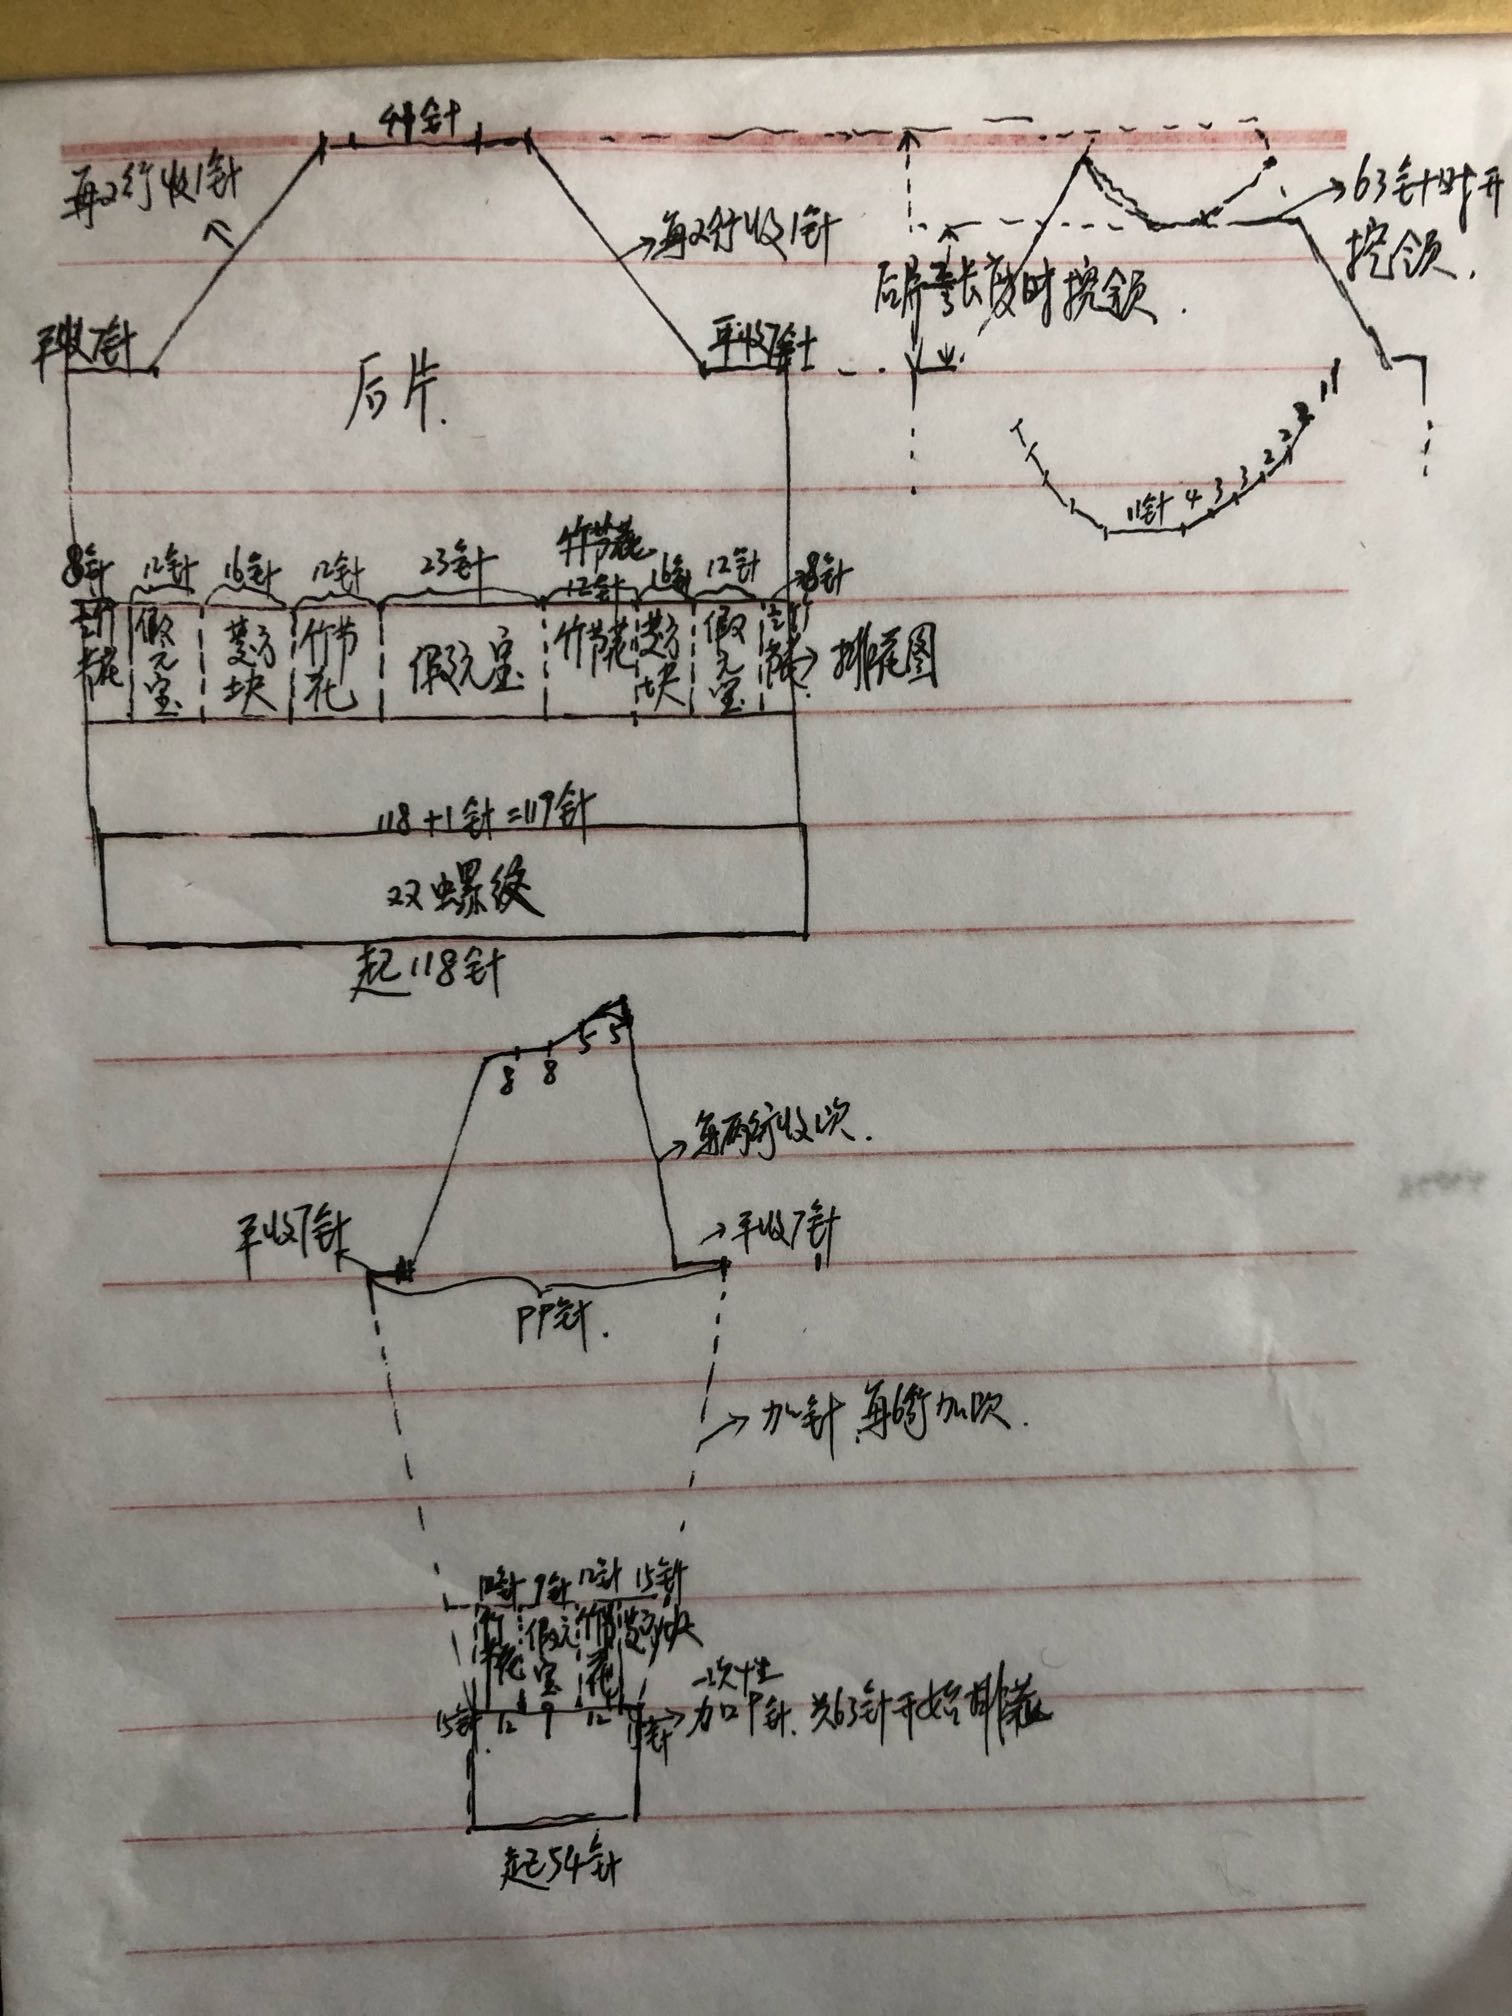 44针
每2行收1针
每2行收1针
63针时开
挖领.
后片 长度时挖领.
平收7针
平收7针
后片.
11针 4 3 3 2 2 2 1 1
竹节花
8针 12针 16针 12针 23针 12针 16针 12针 8针
竹节花 假元宝 菱方块 竹节花 假元宝 竹节花 菱方块 假元宝 竹节花 排花图
118+1针=119针
双螺纹
起118针
8 8 5 5
每两行收1次.
平收7针
平收7针
PP针.
加针 每6行加1次.
12针 9针 12针 15针
竹节花 假元宝 竹节花 菱方块
一次性
15针 12 9 12 15针 加9针.共63针开始排花
起54针